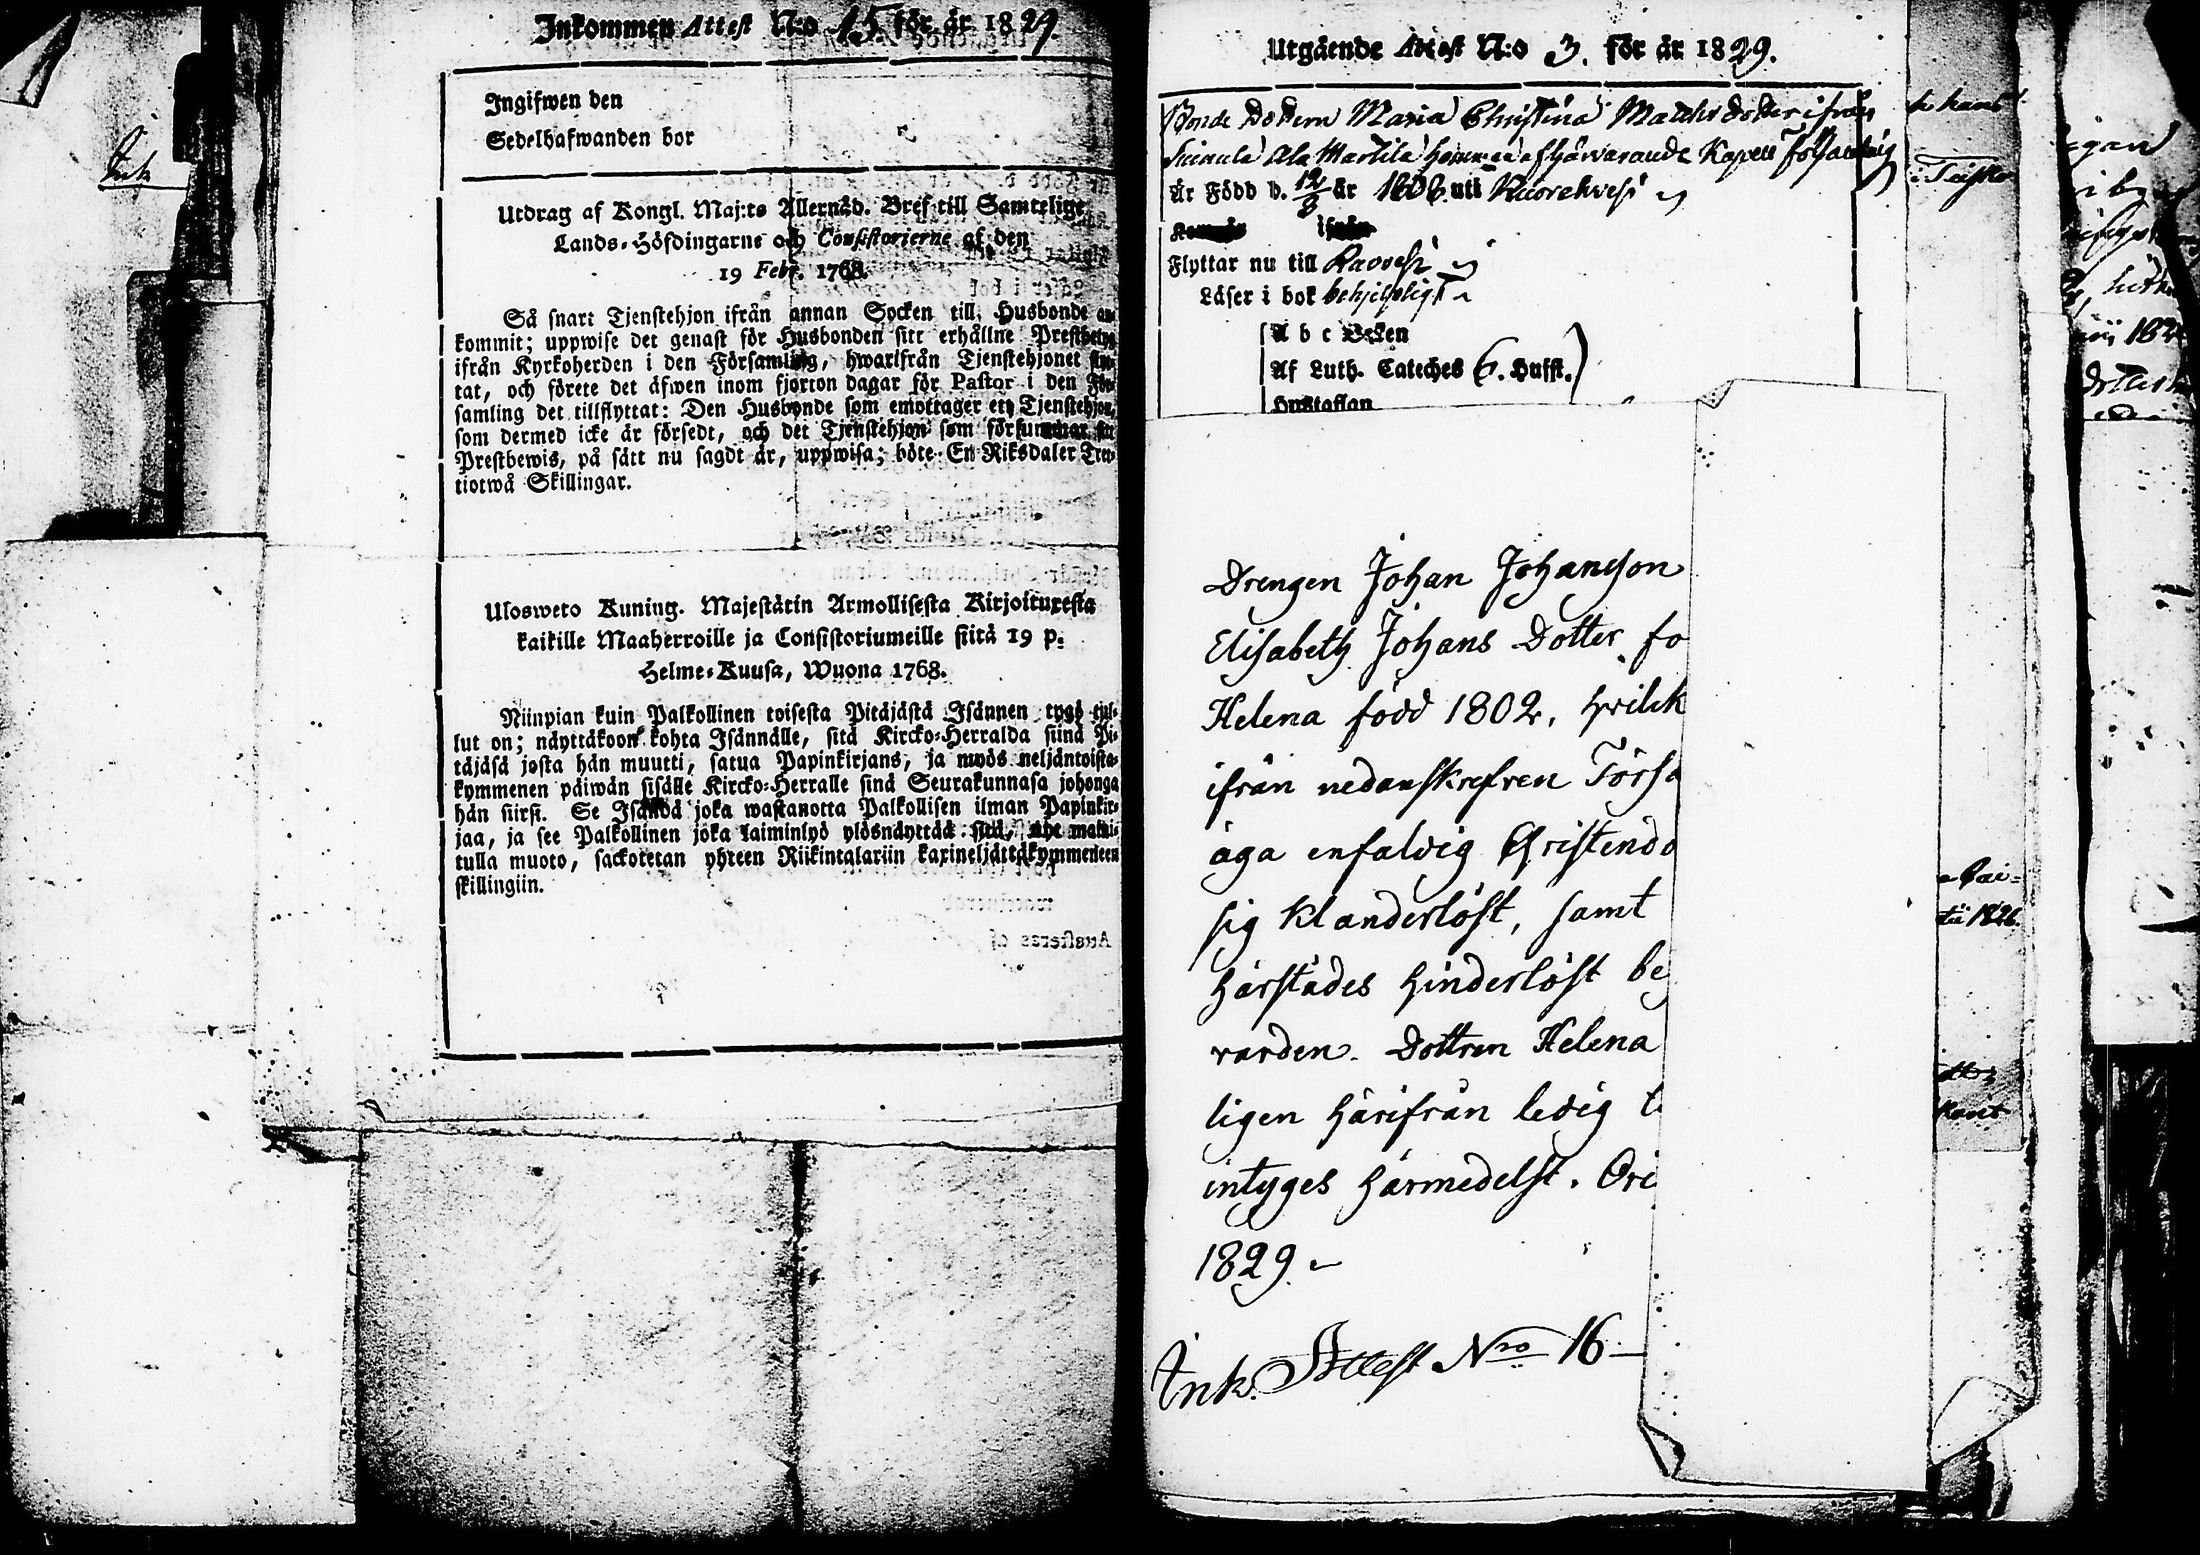 Ink
Inkommen Attest N:o 15. för år 1829.
Ingifwen den
Sedelhafwanden bor
Utdrag af Kongl. Maj:ts Allernåd. Bref till Samtelige
Lands-Höfdingarne och Consistorierne af den
19 Febr. 1768.
Så snart Tjenstehjon ifrån annan Socken till Husbonde an-
kommit; uppwise det genast för Husbonden sitt erhållne Prestbetyg
ifrån Kyrkoherden i den Församling, hwarifrån Tjenstehjonet flyt-
tat, och förete det äfwen inom fjorton dagar för Pastor i den För-
samling det tillflyttat: Den Husbonde som emottager ett Tjenstehjon,
som dermed icke är försedt, och det Tjenstehjon som försummar sin
Prestbewis, på sätt nu sagdt är, uppwisa; böte En Riksdaler Tret-
tiotwå Skillingar.
Ulosweto Kuning. Majestätin Armollisesta Kirjoituxesta
kaikille Maaherroille ja Consistoriumeille siitä 19 p.
Helme-Kuusa, Wuona 1768.
Niinpian kuin Palkollinen toisesta Pitäjästä Isännen tygö tul-
lut on; näyttäkoon kohta Isännälle, sitä Kircko-Herralda siinä Pi-
täjäsä josta hän muutti, satua Papinkirjans, ja myös neljäntoista-
kymmenen päiwän sisälle Kircko-Herralle sinä Seurakunnasa johonga
hän siirsi. Se Isändä joka wastanotta Palkollisen ilman Papinkir-
jaa, ja see Palkollinen joka laiminlyö ylösnäyttää sitä, nyt maini-
tulla muoto, sackotetan yhteen Riikintalariin kaxineljättäkymmeneen
skillingiin.
Utgående Attest N:o 3. för år 1829.
Bonde Dottern Maria Christina Matths dotter ifrån
Ala Martila hemman af härvarande Kapell
Är Född d. 12/8 år 1806. uti Kuorehvesi
ifrån
Flyttar nu till
Läser i bok behjelpligt
A b c Boken
Af Luth. Cateches 6. Hufst.
Hustaflan
Drengen Johan Johansson
Elisabeth Johans Dotter fo
Helena född 1802, hvilk
ifrån nedanskrefven Förs
äga enfaldig Christendo
sig klanderlöst, samt
härstädes hinderlöst be
varden. Dottren Helena
ligen härifrån ledig t
intyges härmedelst. Ori
1829
Ink. Attest Nro 16
1826.